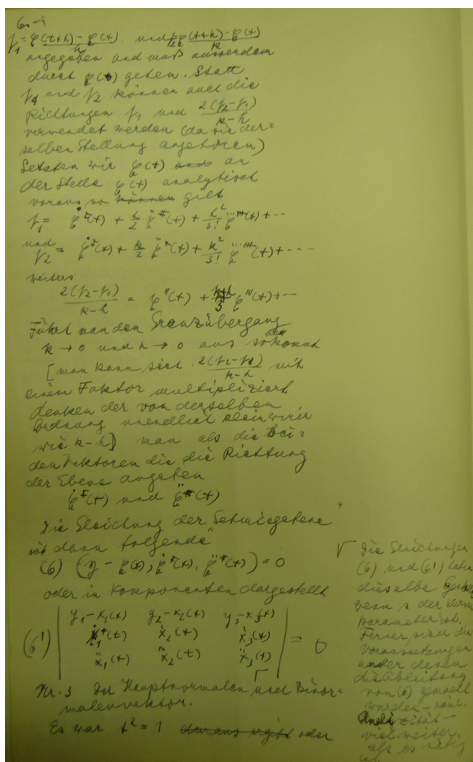 𝔶₁ = (𝔵(t+h) − 𝔵(t))/h und 𝔶₂ = (𝔵(t+k) − 𝔵(t))/k
angegeben und muß ausserdem
durch 𝔵(t) gehen. Statt
𝔶₁ und 𝔶₂ können auch die
Richtungen 𝔶₁ und 2(𝔶₂−𝔶₁)/(k−h)
verwendet werden (da sie der=
selben Stellung angehören)
Setzen wir 𝔵(t) an
der Stelle 𝔵(t) analytisch
voraus so gilt
𝔶₁ = 𝔵̇(t) + h/2 𝔵̈(t) + h²/3! 𝔵⃛(t) + ⋯
und
𝔶₂ = 𝔵̇(t) + k/2 𝔵̈(t) + k²/3! 𝔵⃛(t) + ⋯
weiters
2(𝔶₂−𝔶₁)/(k−h) = 𝔵''(t) + (k+h)/3 𝔵'''(t) + ⋯
Führt man den Grenzübergang
k → 0 und h → 0 aus so kommt
[man kann sich 2(𝔶₂−𝔶₁)/(k−h) mit
einem Faktor multipliziert
denken der von derselben
Ordnung unendlich klein wird
wie k−h] man als die bei=
den Vektoren die die Richtung
der Ebene angeben
𝔵̇(t) und 𝔵̈(t)
Die Gleichung der Schmiegebene
ist dann folgende
(6) (𝔶 − 𝔵(t), 𝔵̇(t), 𝔵̈(t)) = 0
oder in Komponenten dargestellt
(6') | y₁−x₁(t) y₂−x₂(t) y₃−x₃(t) |
| ẋ₁(t) ẋ₂(t) ẋ₃(t) | = 0
| ẍ₁(t) ẍ₂(t) ẍ₃(t) |
Nr. 3 Der Hauptnormalen und Binor=
malenvektor.
Es war t² = 1 daraus ergibt oder
Die Gleichungen
(6) und (6')
dieselbe
wenn s der
parameter ist.
Ferner sind die
Voraussetzungen
unter denen
die Ableitung
von (6) gemacht
wurden
zität
viel weiter
als es nötig